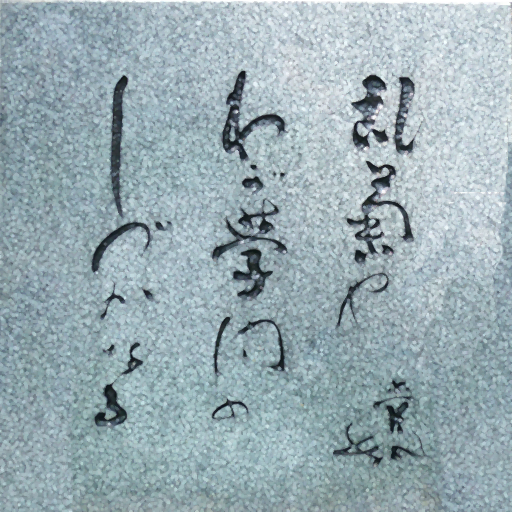 乱菊や
わが学問の
しづかなる